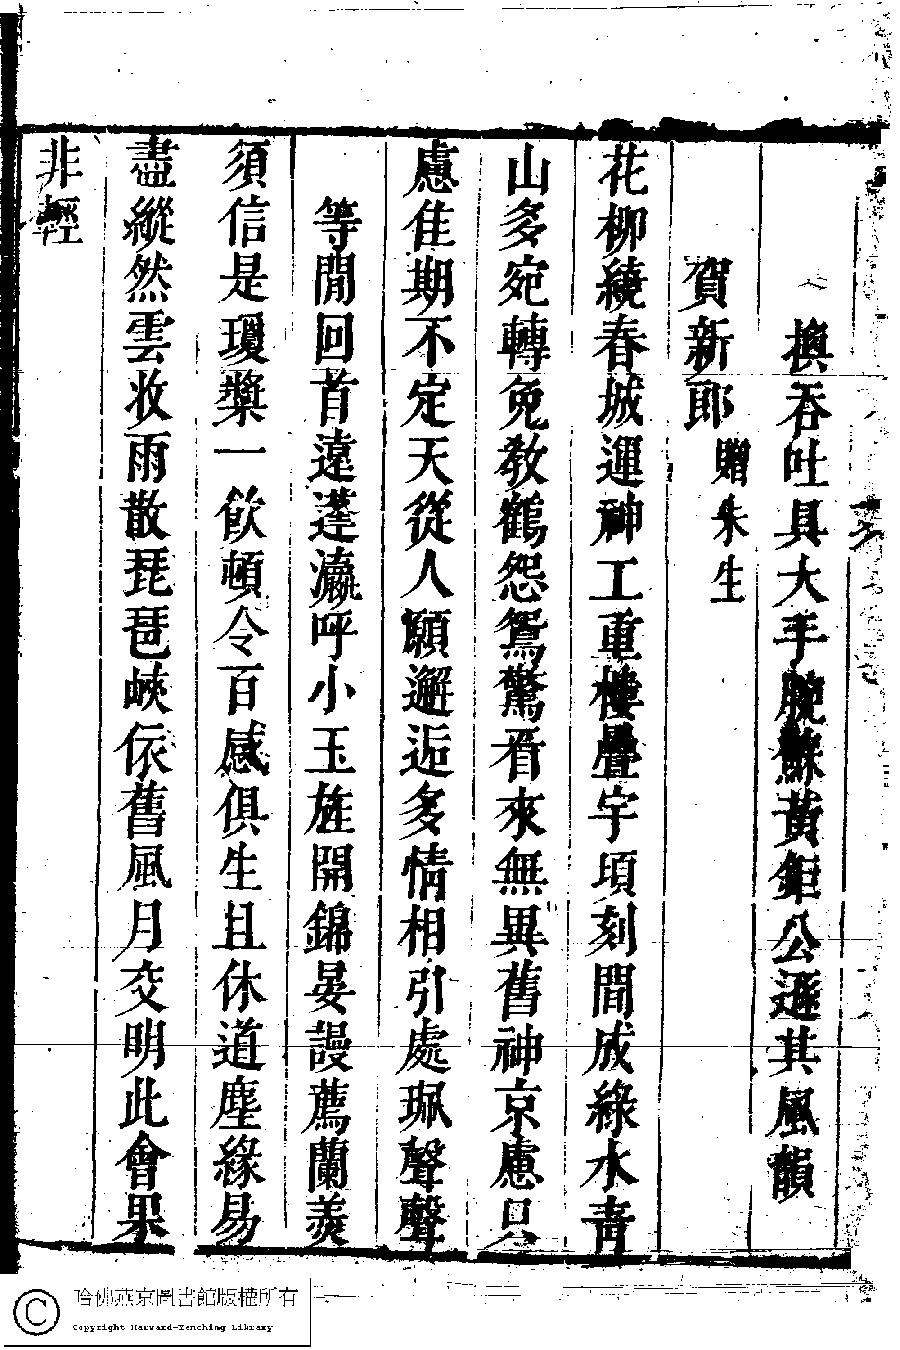 換吞吐具大手腕蘇黃鉅公遜其風韻
賀新郎 贈朱生
花柳繞春城運神工重樓疊宇頃刻間成綠水青
山多宛轉免教鶴怨鴛驚看來無異舊神京慮只
慮佳期不定天從人願邂逅多情相引處珮聲聲
等閒回首遠蓬瀛呼小玉旌開錦晏謾薦蘭羹
須信是瓊漿一飲頓令百感俱生且休道塵緣易
盡縱然雲收雨散琵琶峽依舊風月交明此會果
非輕
哈佛燕京圖書館版權所有
Copyright Harvard-Yenching Library